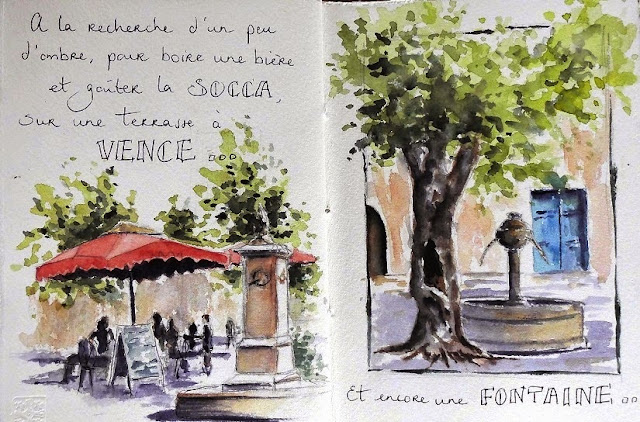 A la recherche d'un peu
d'ombre, pour boire une bière
et goûter la SOCCA,
sur une terrasse à
VENCE...
Et encore une FONTAINE...